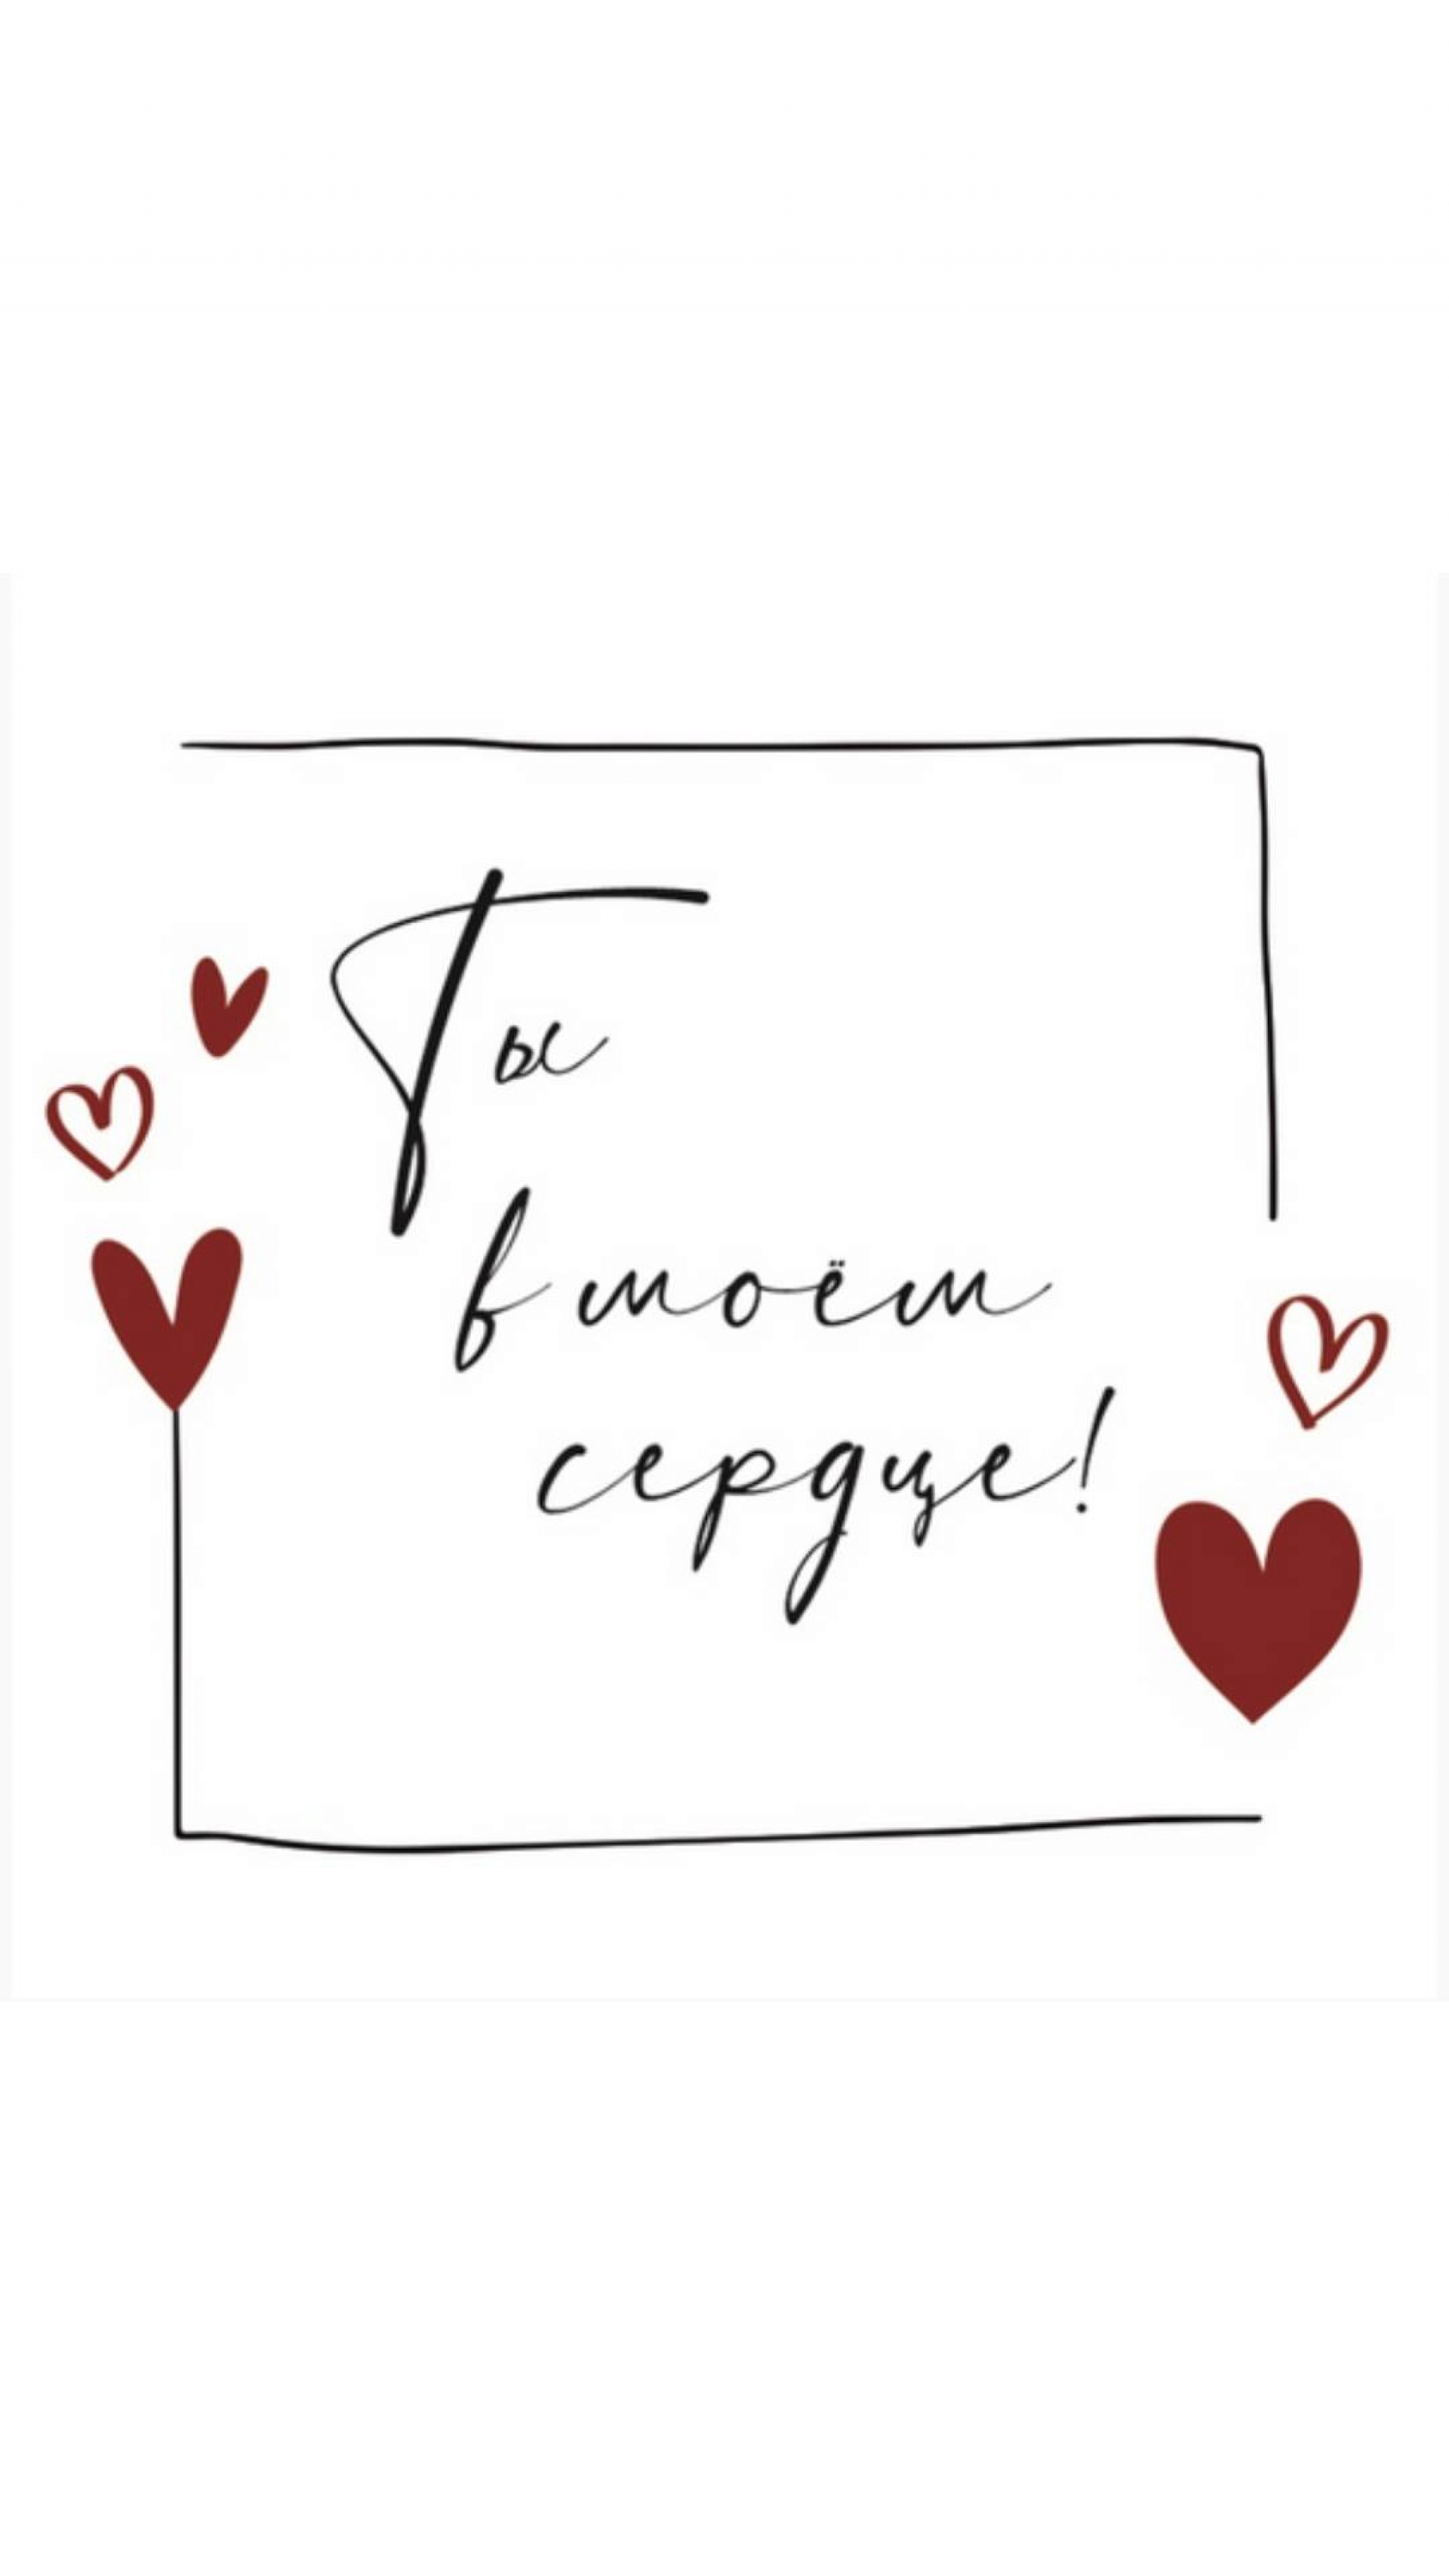 Ты
в моём
сердце!